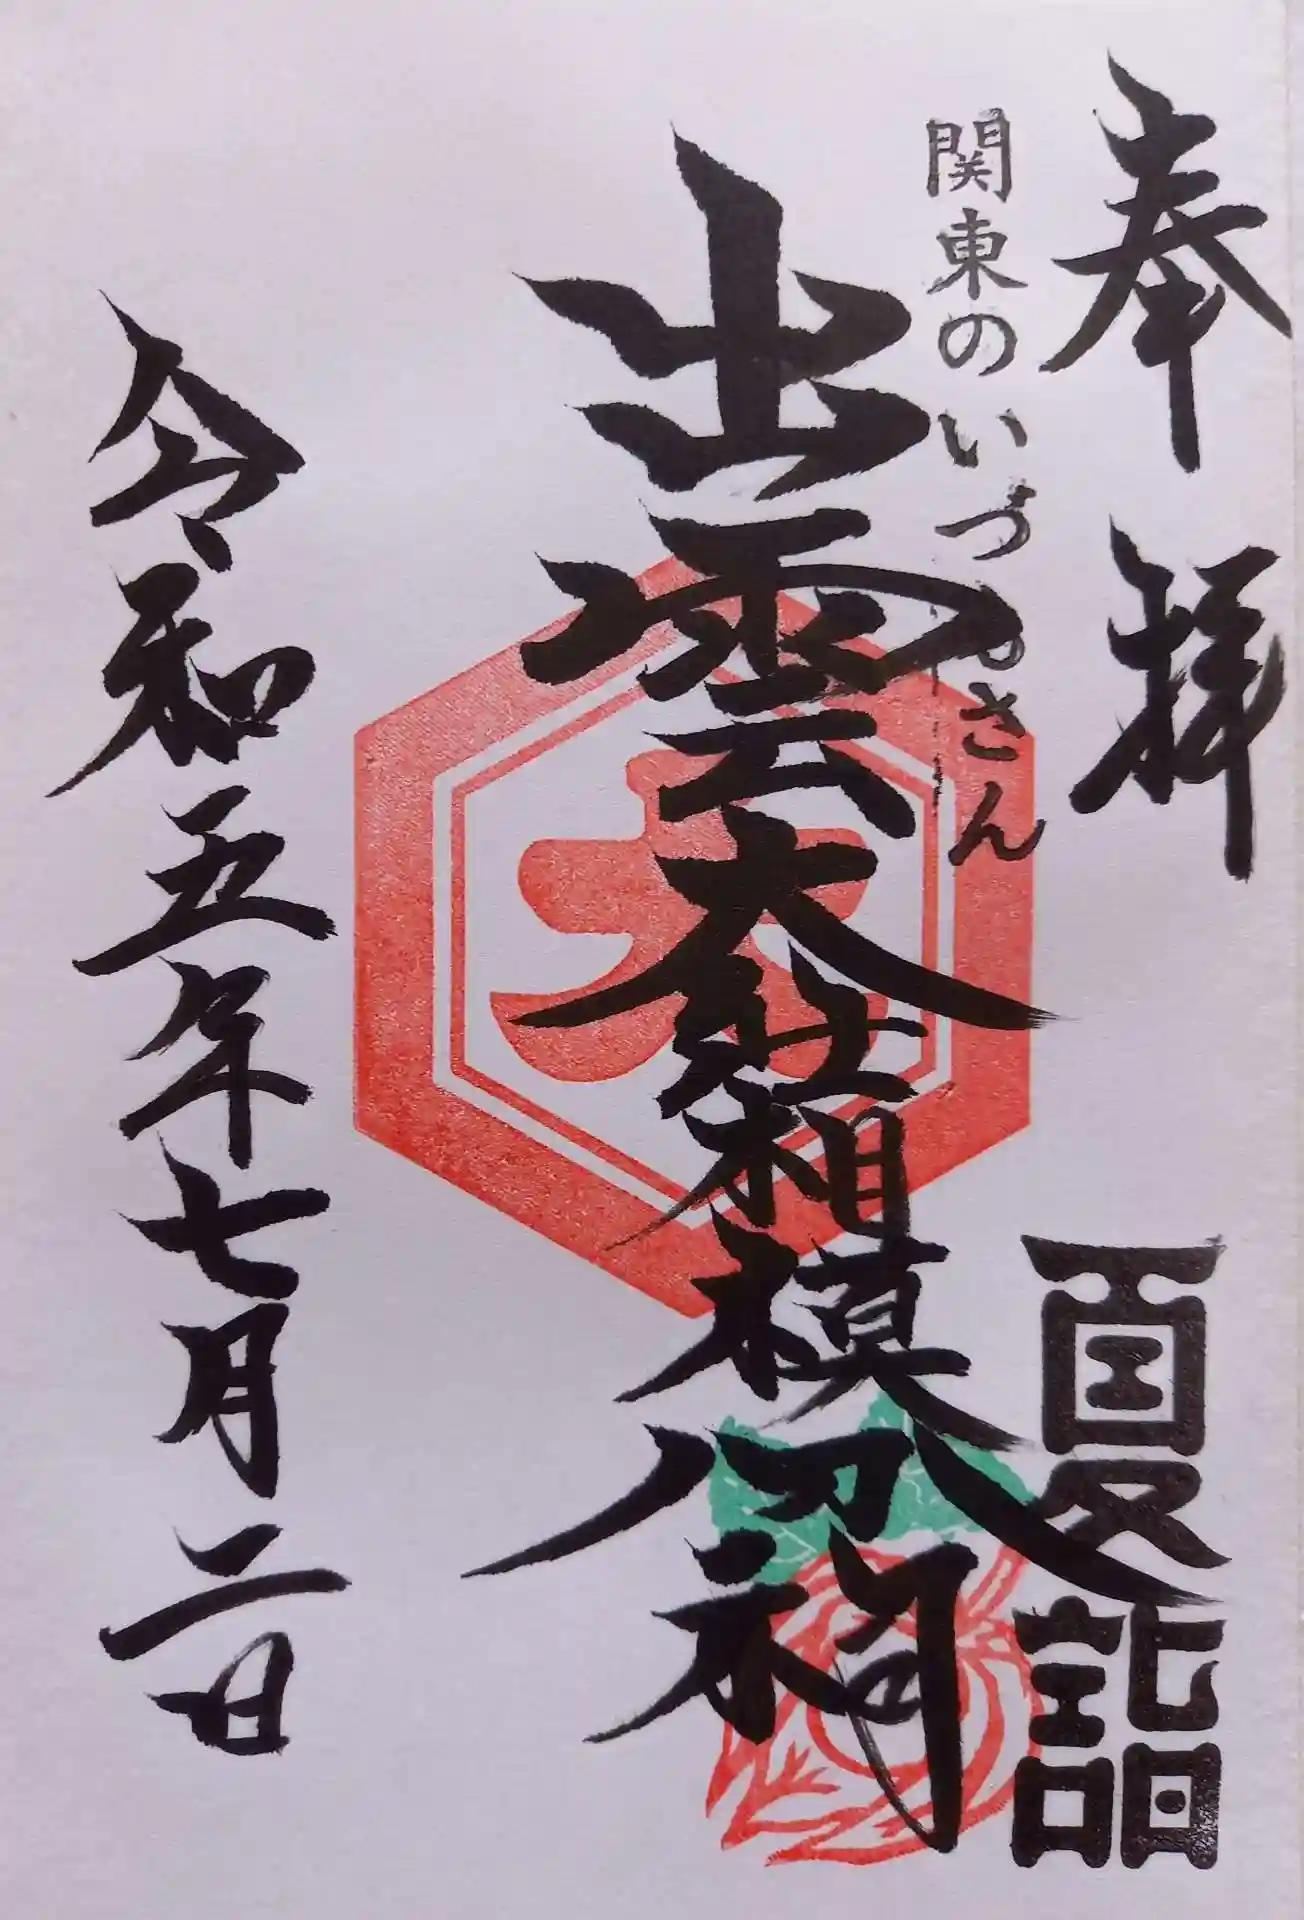 奉拝
関東のいづもさん
出雲大社相模分祠
夏詣
大
令和五年七月二日